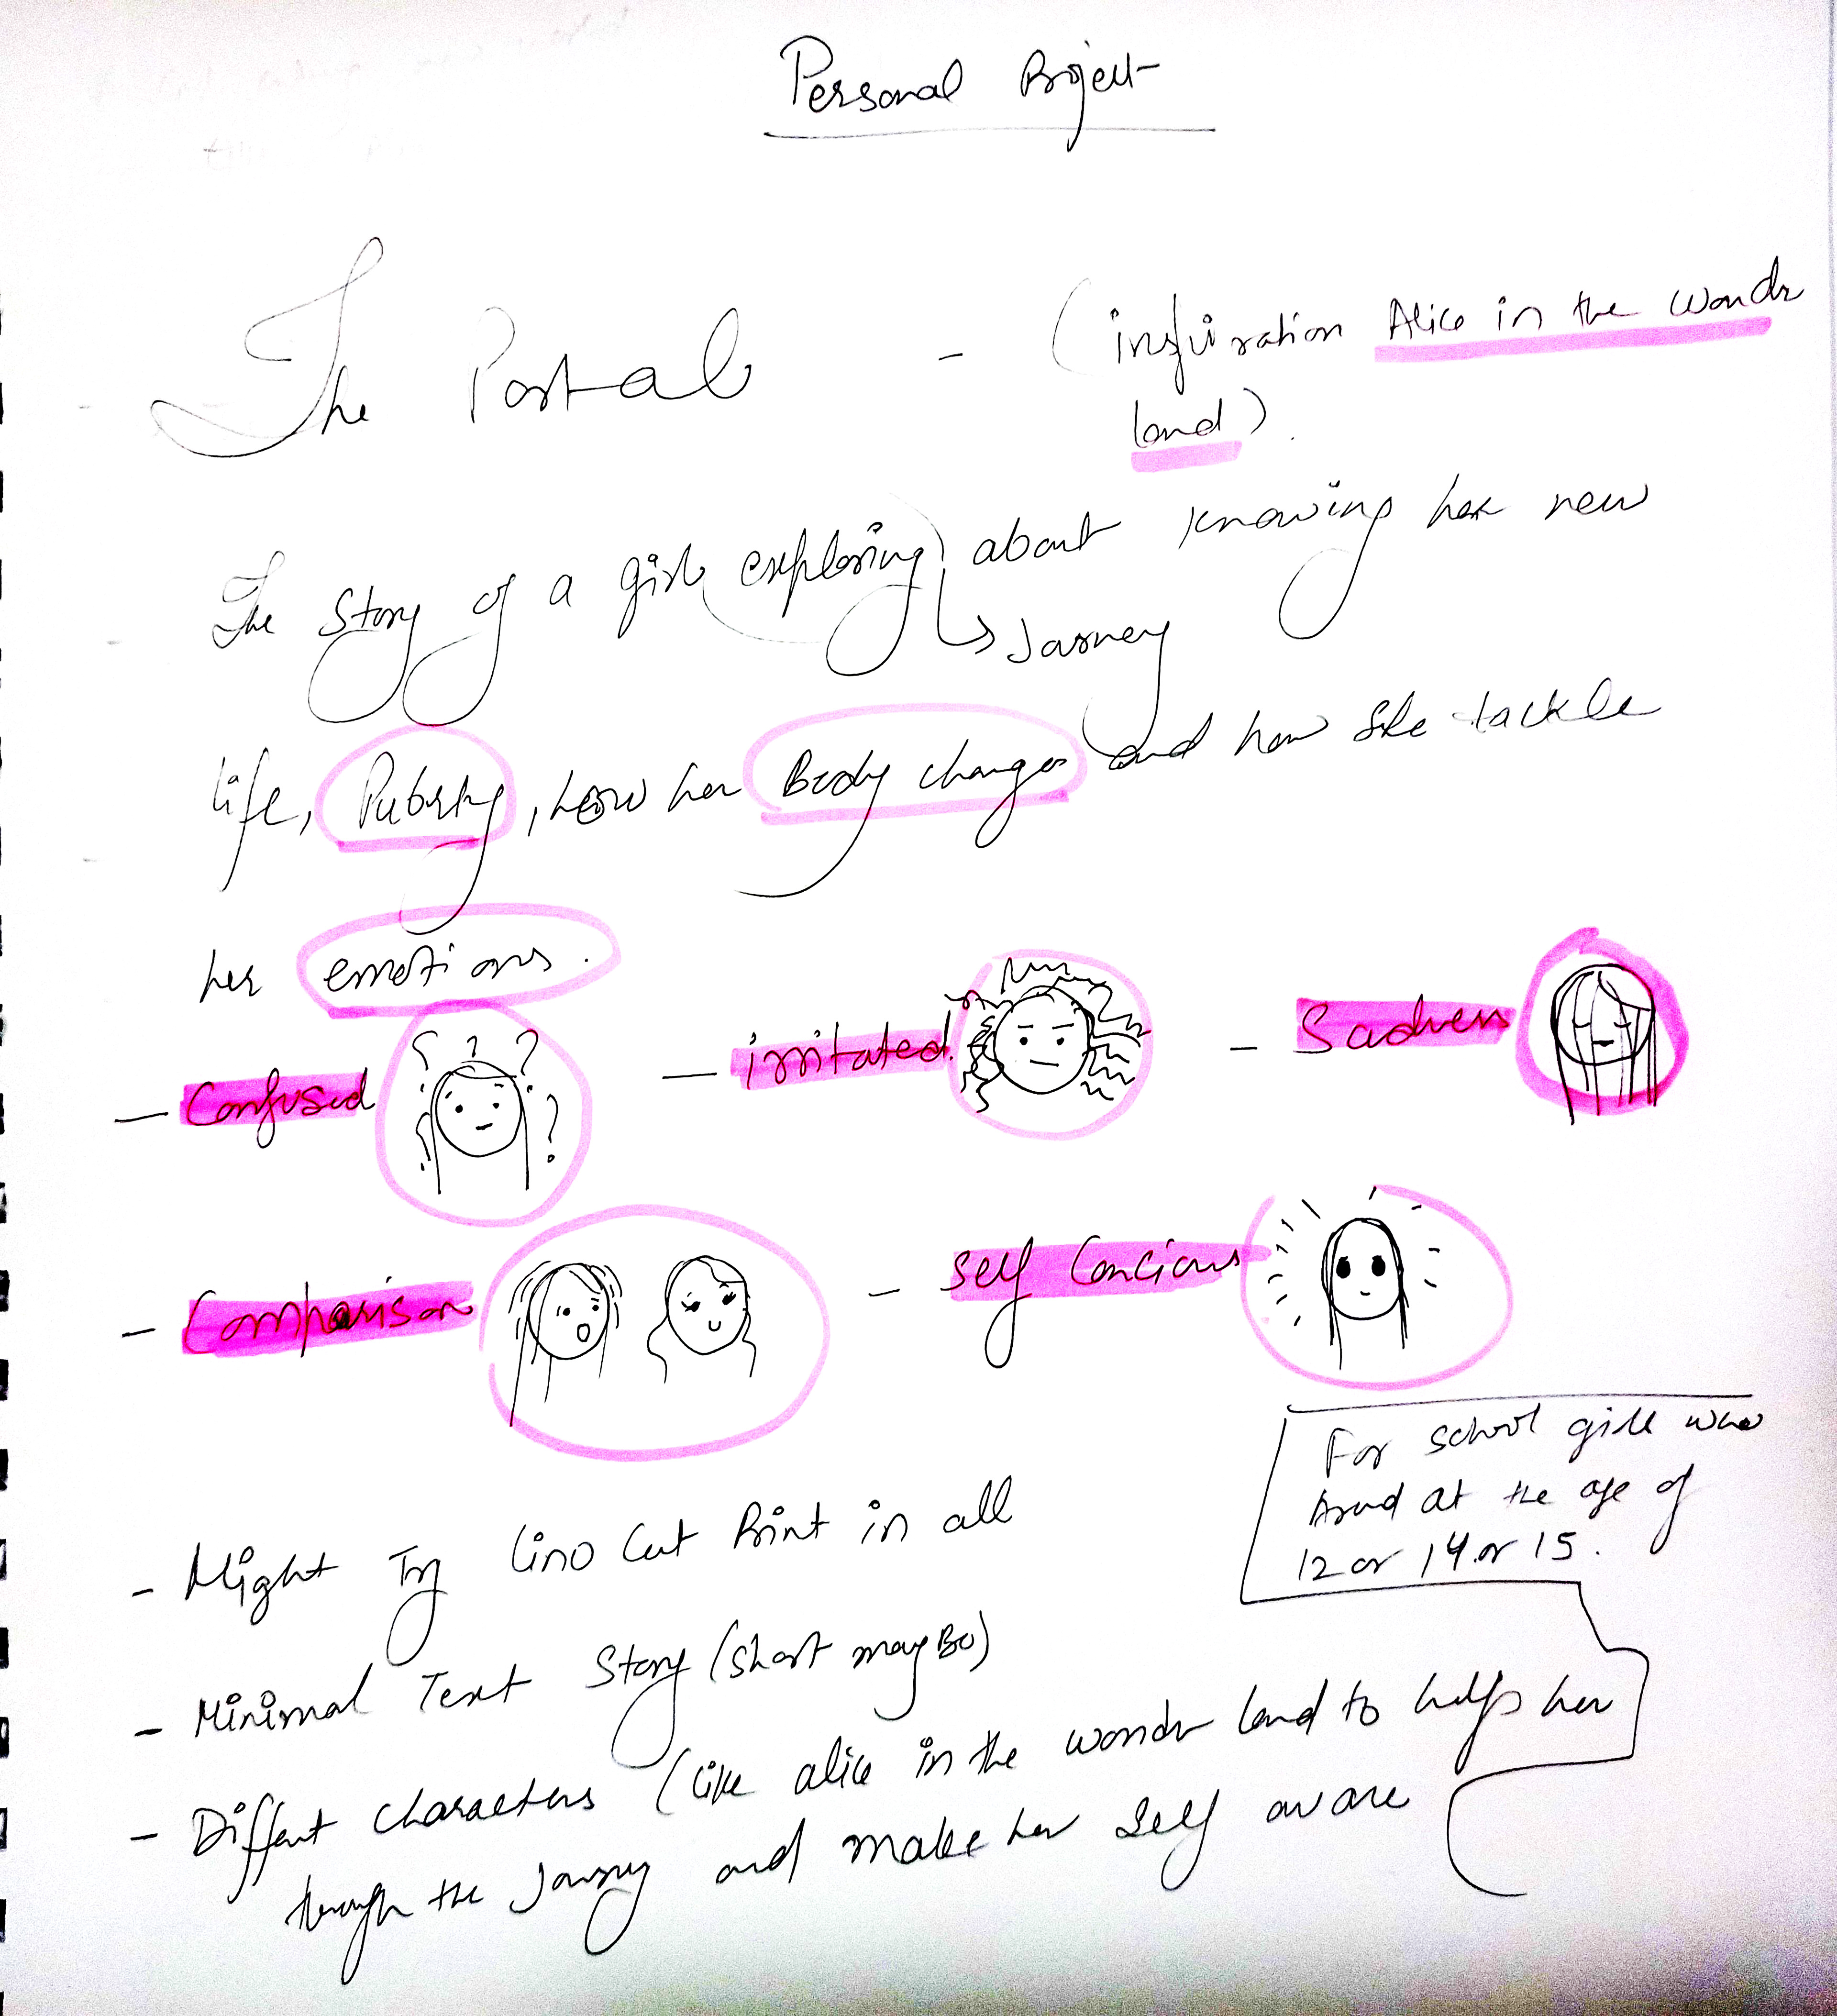 Personal Project
The Portal - (inspiration Alice in the wonder
land).
The Story of a girl exploring about knowing her new
↳ Journey
life, Puberty, how her Body changes and how she tackle
her emotions.
- Confused - irritated - Sadness
? ? ? ?
- Comparison - self Concious
For school girls who
Around at the age of
12 or 14 or 15.
- Might Try Lino Cut Print in all
- Minimal Text Story (short mayBe)
- Diffent characters (like alice in the wonder land to helps her
through the Journey and make her self aware